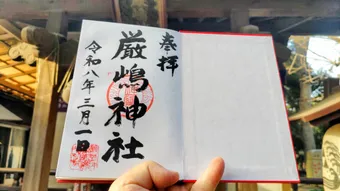 奉拝
厳嶋神社
令和八年三月一日